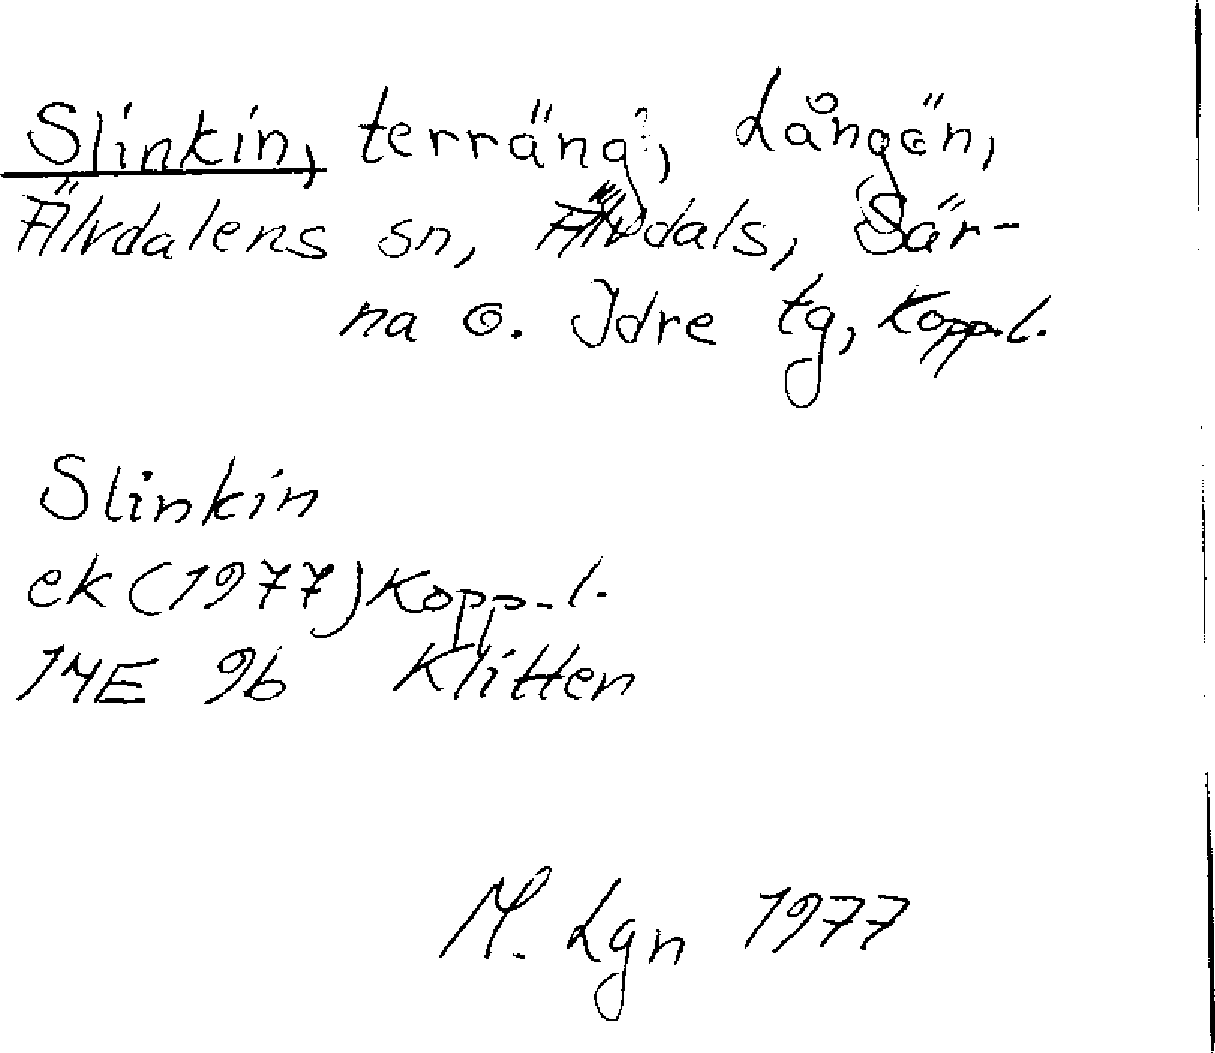 Slinkin, terräng, Långön,
Älvdalens sn, Älvdals, Sär-
na o. Idre tg, Kopp.l.
Slinkin
ek (1977) Kopp-l.
14E 9b Klitten
M. Lgn 1977